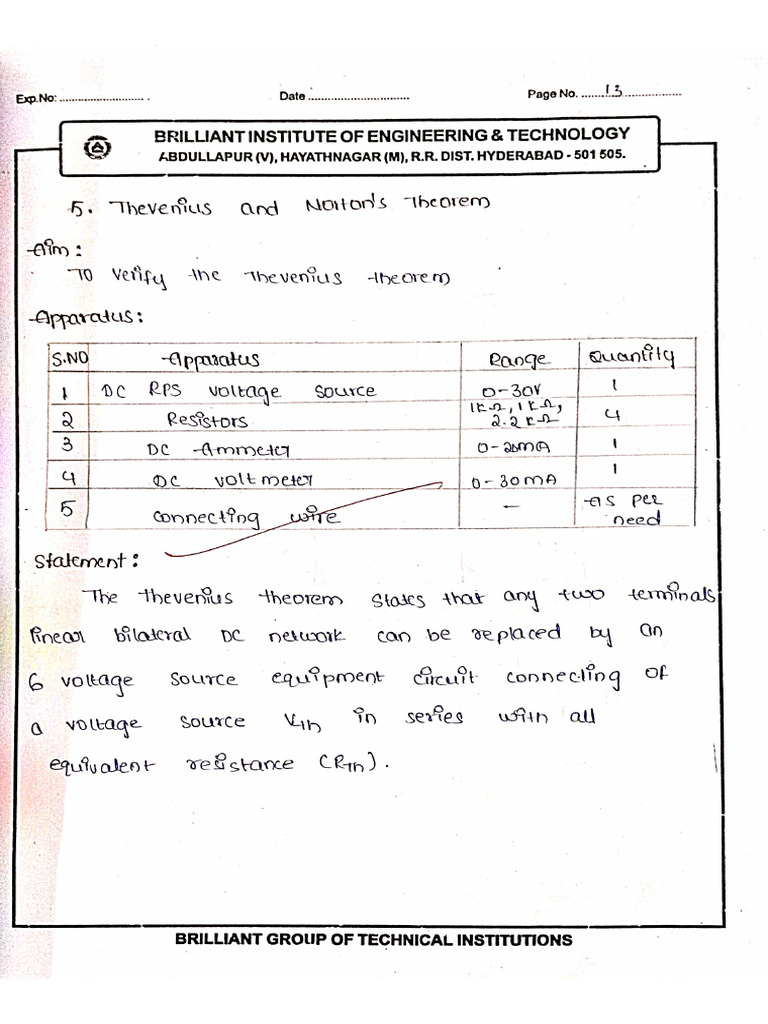 Exp.No: ............................ Date ............................... Page No. .......13..................
BRILLIANT INSTITUTE OF ENGINEERING & TECHNOLOGY
ABDULLAPUR (V), HAYATHNAGAR (M), R.R. DIST. HYDERABAD - 501 505.
5. Thevenius and Norton's Theorem
Aim:
To Verify the Thevenius theorem
Apparatus:
S.NO Apparatus Range Quantity
1 DC RPS voltage source 0-30V 1
2 Resistors 1kΩ, 1kΩ, 2.2kΩ 4
3 DC Ammeter 0-20mA 1
4 DC voltmeter 0-30mA 1
5 connecting wire - As per need
Statement:
The Thevenius theorem states that any two terminals
linear bilateral DC network can be replaced by an
6 voltage source equipment circuit connecting of
a voltage source Vth in series with all
equivalent resistance (RTh).
BRILLIANT GROUP OF TECHNICAL INSTITUTIONS